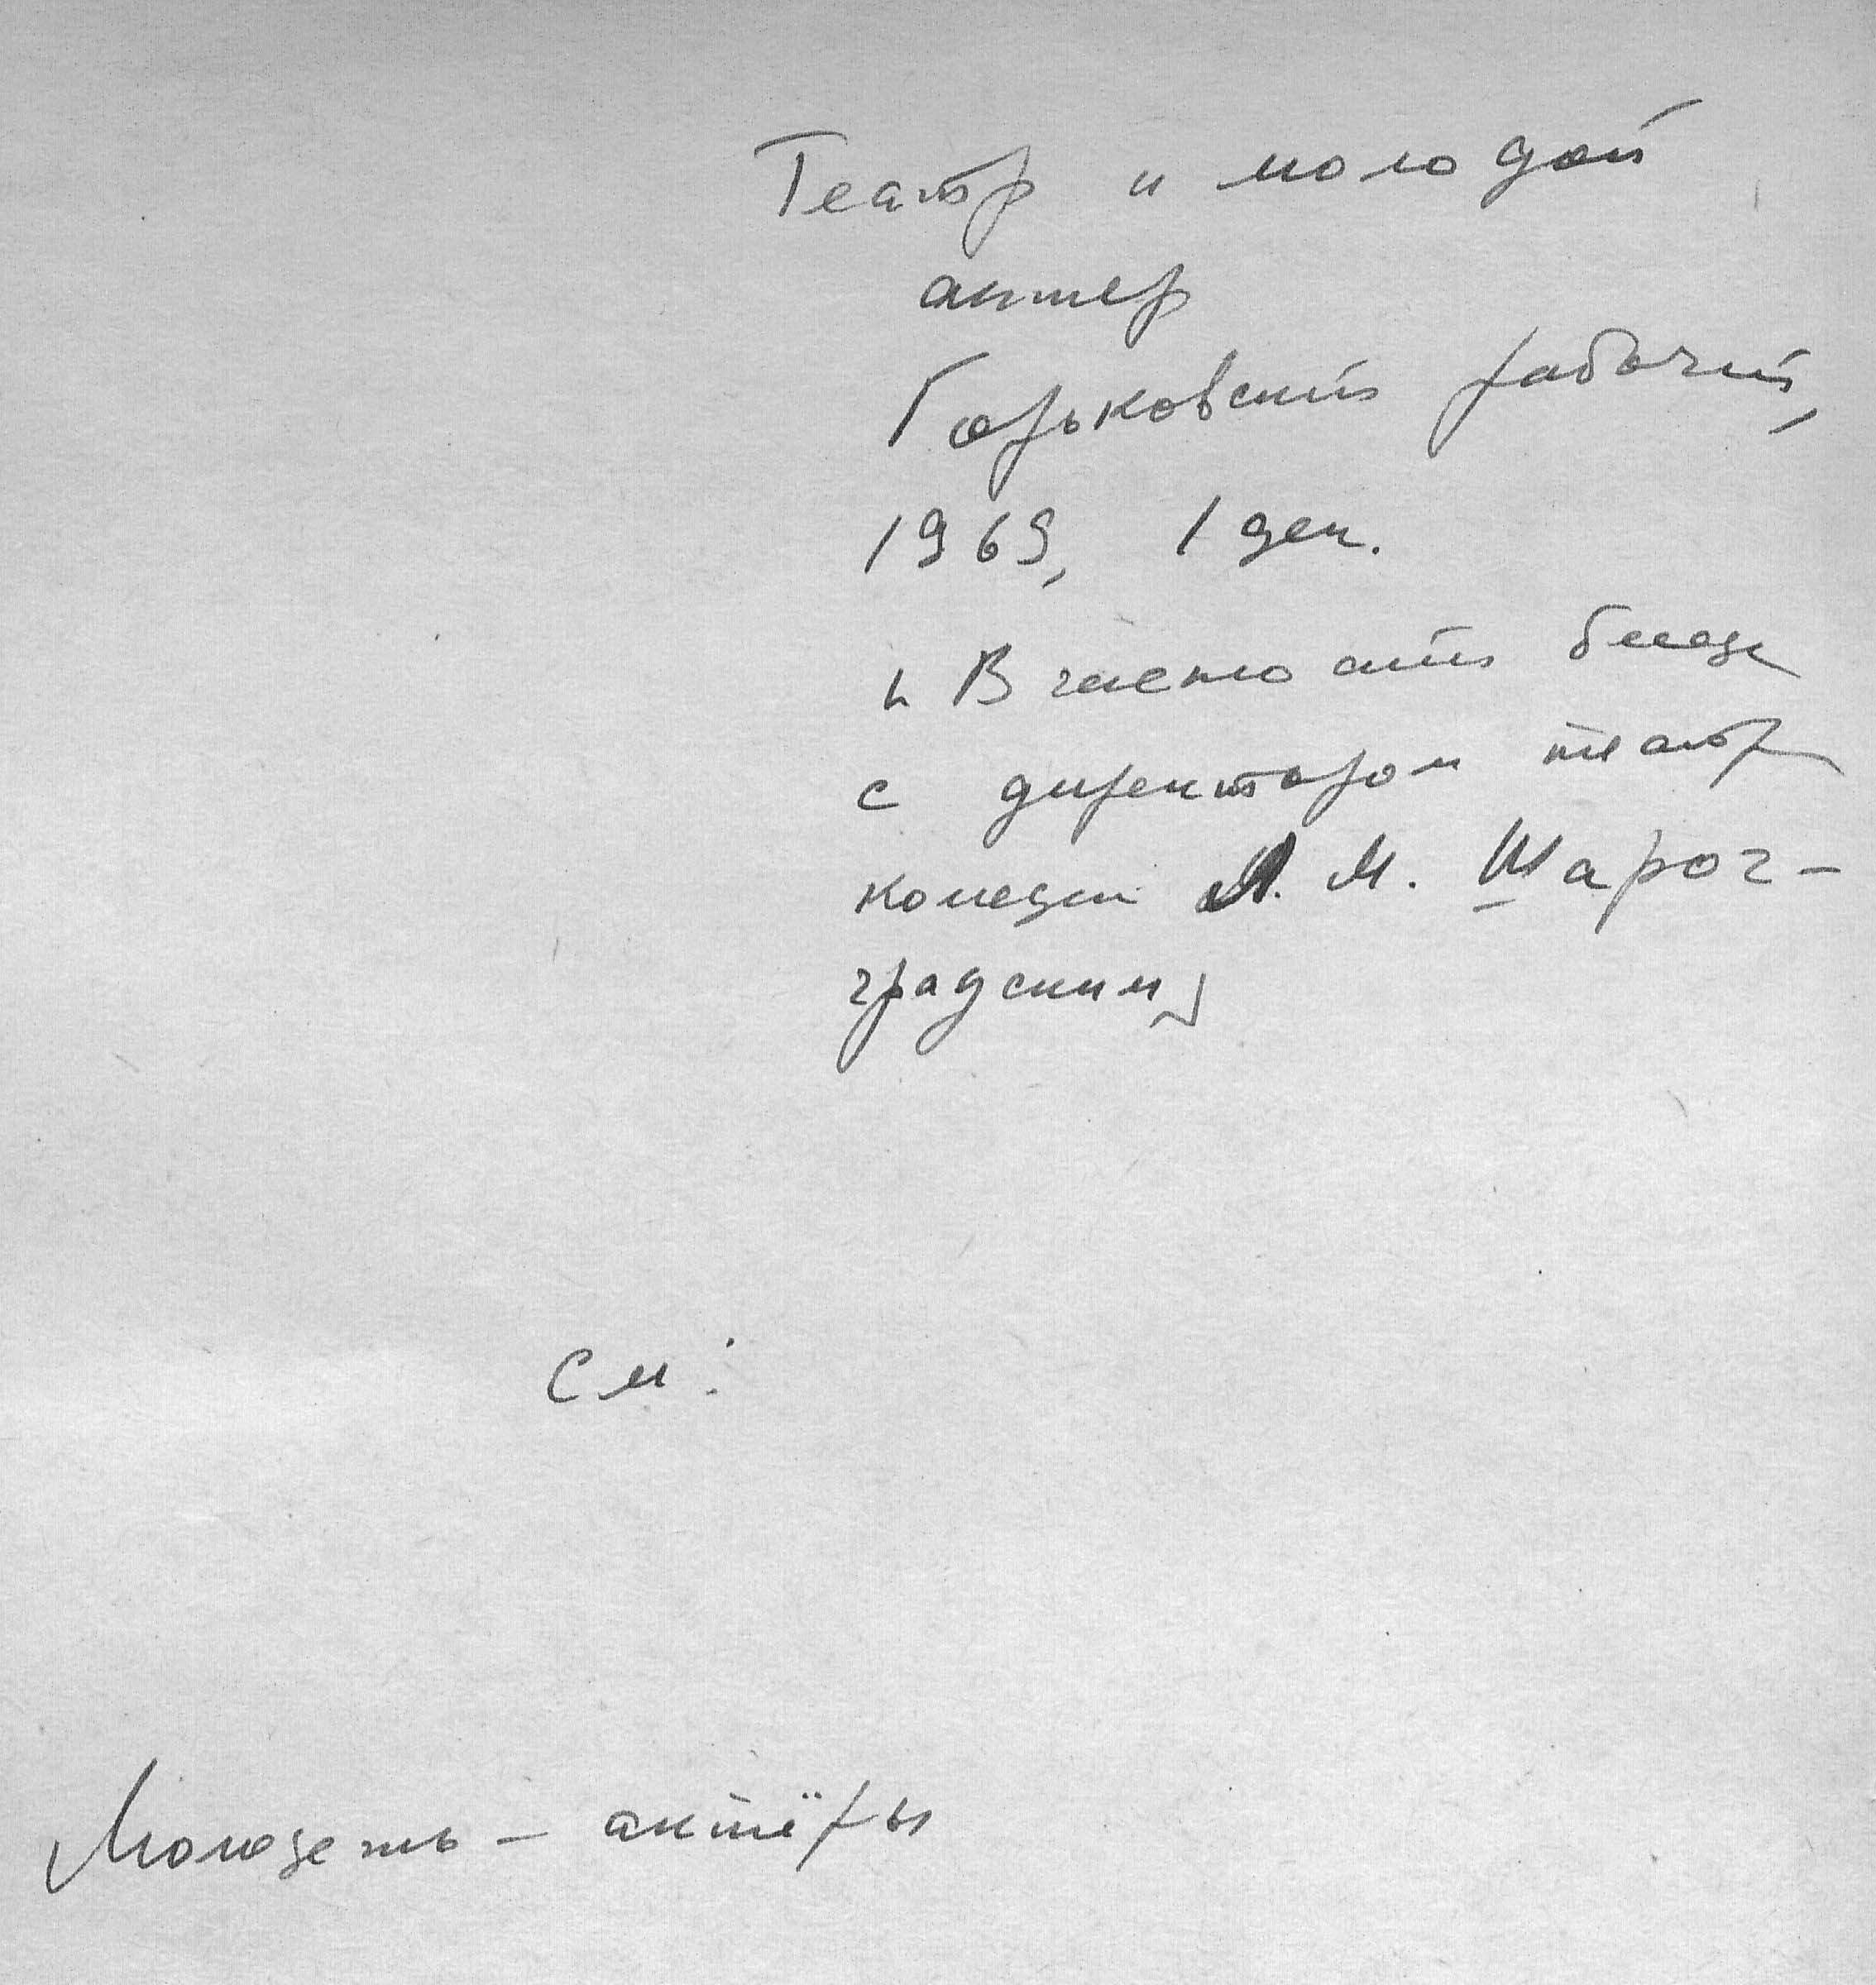 Театр и молодой
актер
Горьковский рабочий,
1969, 1 дек.
В частности беседа
с директором театра
комедии М. Шарог-
градским
См:
Молодежь – актёры